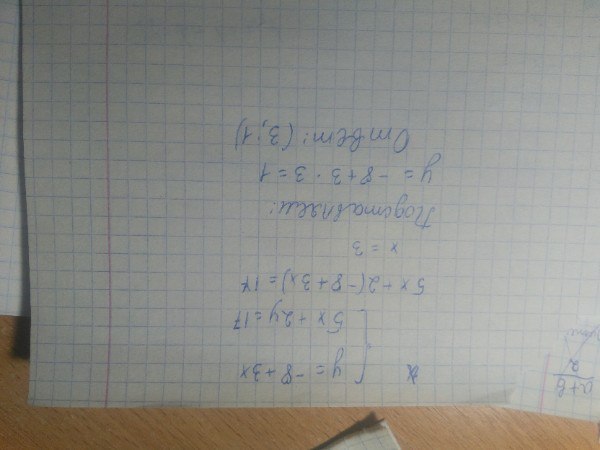 y = -8+3x
5x + 2y = 17
5x + 2(-8+3x) = 17
x = 3
Подставляем:
y = -8+3·3 = 1
Ответ: (3; 1)
a+b
2